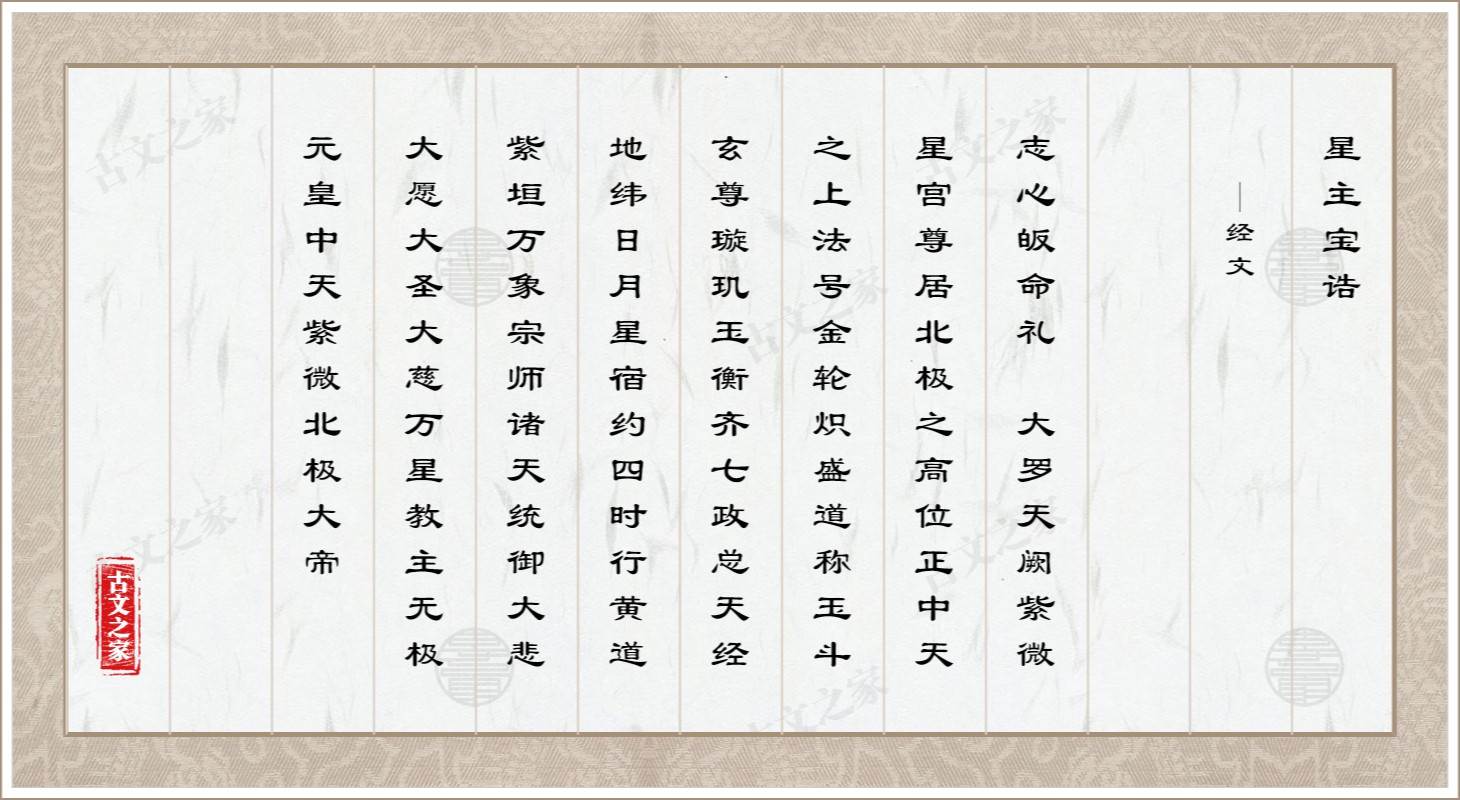 星主宝诰
—经文
志心皈命礼　大罗天阙紫微
星宫尊居北极之高位正中天
之上法号金轮炽盛道称玉斗
玄尊璇玑玉衡齐七政总天经
地纬日月星宿约四时行黄道
紫垣万象宗师诸天统御大悲
大愿大圣大慈万星教主无极
元皇中天紫微北极大帝
古文之家